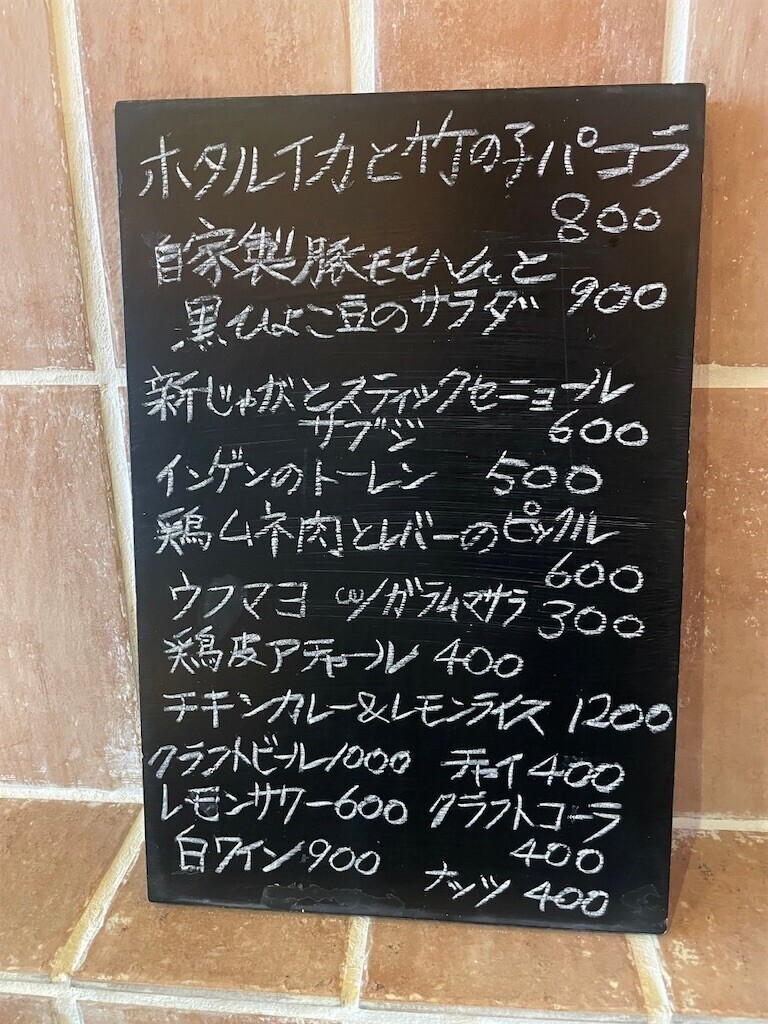 ホタルイカと竹の子パコラ
800
自家製豚モモハムと
黒ひよこ豆のサラダ 900
新じゃがとスティックセニョール
サブジ 600
インゲンのトーレン 500
鶏ムネ肉とレバーのピックル
600
ウフマヨ w/ガラムマサラ 300
鶏皮アチャール 400
チキンカレー&レモンライス 1200
クラフトビール1000 チャイ 400
レモンサワー600 クラフトコーラ
400
白ワイン900
ナッツ 400